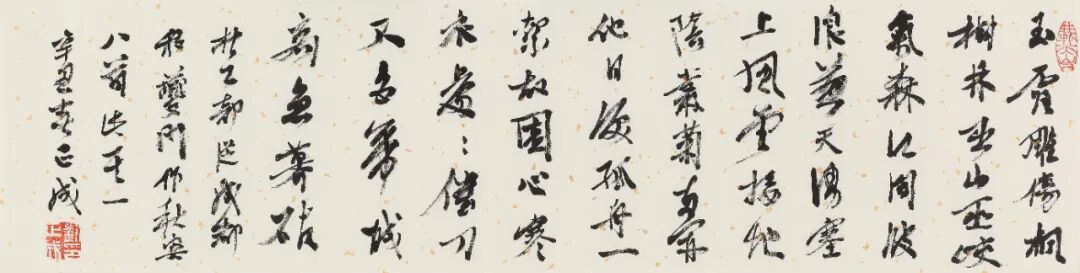 玉露雕傷楓
樹林巫山巫峽
氣森江間波
浪兼天湧塞
上風雲接地
陰叢菊兩開
他日淚孤舟一
繫故園心寒
衣處〻催刀
尺白帝城
高急暮砧
杜工部成都
移夔門作秋興
八首此其一
辛丑春正成